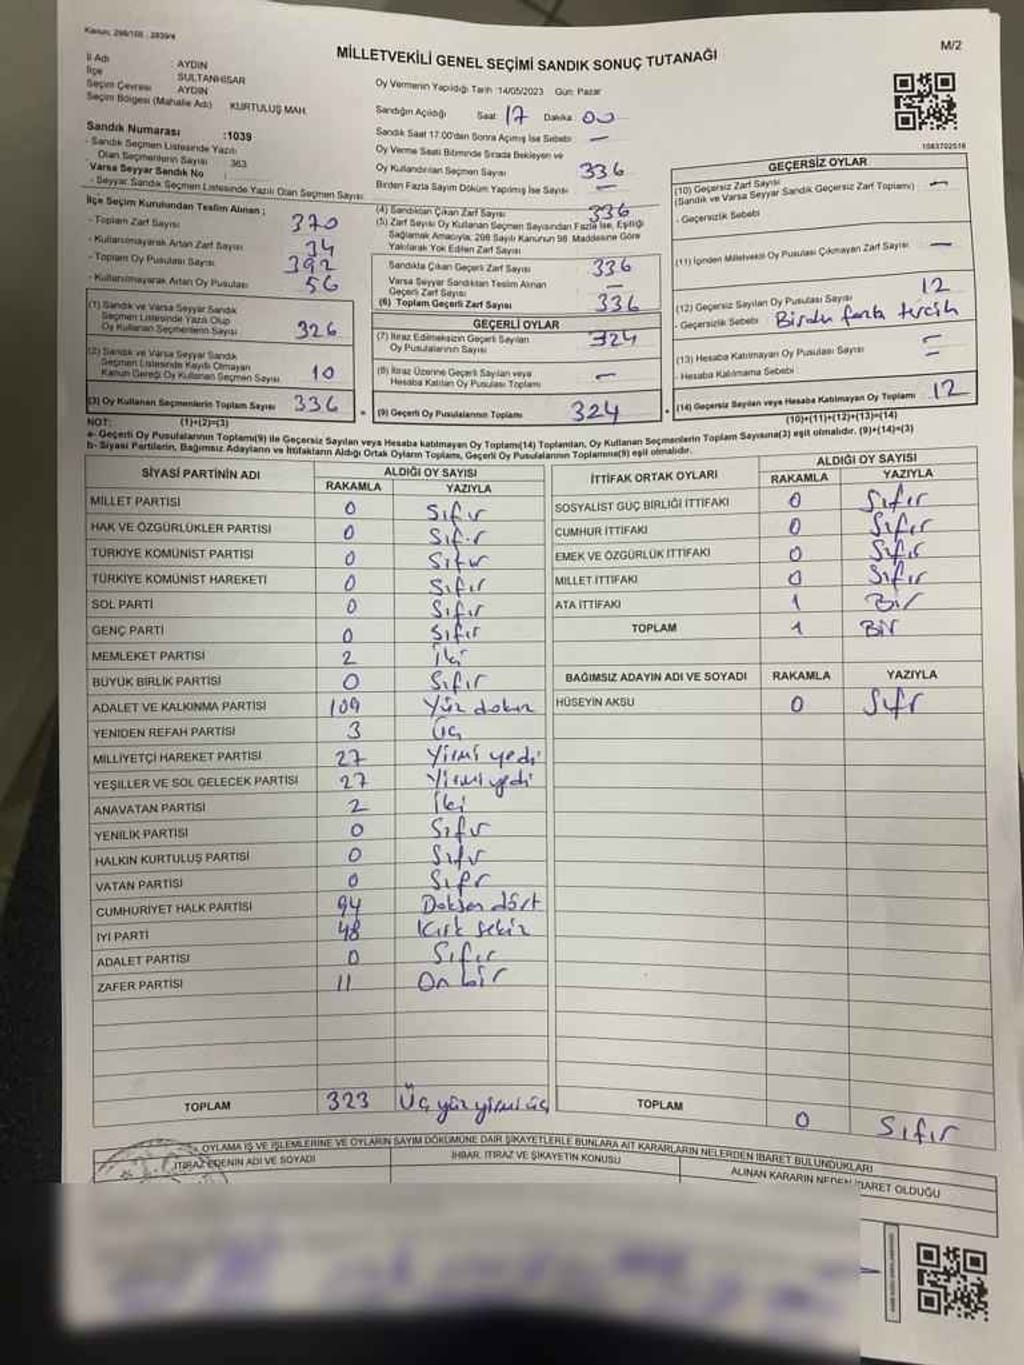 Kanun: 298/105 , 2839/4
M/2
MİLLETVEKİLİ GENEL SEÇİMİ SANDIK SONUÇ TUTANAĞI
İl Adı : AYDIN
İlçe SULTANHİSAR
Seçim Çevresi : AYDIN
Seçim Bölgesi (Mahalle Adı) KURTULUŞ MAH.
Oy Vermenin Yapıldığı Tarih :14/05/2023 Gün: Pazar
Sandığın Açıldığı Saat 17 Dakika 00
Sandık Saat 17.00'dan Sonra Açılmış İse Sebebi —
Oy Verme Saati Bitiminde Sırada Bekleyen ve
Oy Kullandırılan Seçmen Sayısı 336
Birden Fazla Sayım Döküm Yapılmış İse Sayısı —
Sandık Numarası :1039
- Sandık Seçmen Listesinde Yazılı
Olan Seçmenlerin Sayısı 363
Varsa Seyyar Sandık No :
- Seyyar Sandık Seçmen Listesinde Yazılı Olan Seçmen Sayısı
İlçe Seçim Kurulundan Teslim Alınan ;
- Toplam Zarf Sayısı 370
- Kullanılmayarak Artan Zarf Sayısı 34
- Toplam Oy Pusulası Sayısı 392
- Kullanılmayarak Artan Oy Pusulası 56
(1) Sandık ve Varsa Seyyar Sandık
Seçmen Listesinde Yazılı Olup
Oy Kullanan Seçmenlerin Sayısı 326
(2) Sandık ve Varsa Seyyar Sandık
Seçmen Listesinde Kaydı Olmayan
Kanun Gereği Oy Kullanan Seçmen Sayısı 10
(3) Oy Kullanan Seçmenlerin Toplam Sayısı 336
(1)+(2)=(3)
(4) Sandıktan Çıkan Zarf Sayısı 336
(5) Zarf Sayısı Oy Kullanan Seçmen Sayısından Fazla İse, Eşitliği
Sağlamak Amacıyla, 298 Sayılı Kanunun 98. Maddesine Göre
Yakılarak Yok Edilen Zarf Sayısı
Sandıkta Çıkan Geçerli Zarf Sayısı 336
Varsa Seyyar Sandıktan Teslim Alınan
Geçerli Zarf Sayısı —
(6) Toplam Geçerli Zarf Sayısı 336
GEÇERLİ OYLAR
(7) İtiraz Edilmeksizin Geçerli Sayılan
Oy Pusulalarının Sayısı 324
(8) İtiraz Üzerine Geçerli Sayılan veya
Hesaba Katılan Oy Pusulası Toplamı —
(9) Geçerli Oy Pusulalarının Toplamı 324
1083702518
GEÇERSİZ OYLAR
(10) Geçersiz Zarf Sayısı —
(Sandık ve Varsa Seyyar Sandık Geçersiz Zarf Toplamı)
- Geçersizlik Sebebi
(11) İçinden Milletvekili Oy Pusulası Çıkmayan Zarf Sayısı —
(12) Geçersiz Sayılan Oy Pusulası Sayısı 12
- Geçersizlik Sebebi Birden fazla tercih
(13) Hesaba Katılmayan Oy Pusulası Sayısı —
- Hesaba Katılmama Sebebi : —
(14) Geçersiz Sayılan veya Hesaba Katılmayan Oy Toplamı 12
(10)+(11)+(12)+(13)=(14)
NOT:
a- Geçerli Oy Pusulalarının Toplamı(9) ile Geçersiz Sayılan veya Hesaba katılmayan Oy Toplamı(14) Toplamları, Oy Kullanan Seçmenlerin Toplam Sayısına(3) eşit olmalıdır. (9)+(14)=(3)
b- Siyasi Partilerin, Bağımsız Adayların ve İttifakların Aldığı Ortak Oyların Toplamı, Geçerli Oy Pusulalarının Toplamına(9) eşit olmalıdır.
SİYASİ PARTİNİN ADI ALDIĞI OY SAYISI
RAKAMLA YAZIYLA
MİLLET PARTİSİ 0 Sıfır
HAK VE ÖZGÜRLÜKLER PARTİSİ 0 Sıfır
TÜRKİYE KOMÜNİST PARTİSİ 0 Sıfır
TÜRKİYE KOMÜNİST HAREKETİ 0 Sıfır
SOL PARTİ 0 Sıfır
GENÇ PARTİ 0 Sıfır
MEMLEKET PARTİSİ 2 İki
BÜYÜK BİRLİK PARTİSİ 0 Sıfır
ADALET VE KALKINMA PARTİSİ 109 Yüz dokuz
YENİDEN REFAH PARTİSİ 3 Üç
MİLLİYETÇİ HAREKET PARTİSİ 27 Yirmi yedi
YEŞİLLER VE SOL GELECEK PARTİSİ 27 Yirmi yedi
ANAVATAN PARTİSİ 2 İki
YENİLİK PARTİSİ 0 Sıfır
HALKIN KURTULUŞ PARTİSİ 0 Sıfır
VATAN PARTİSİ 0 Sıfır
CUMHURİYET HALK PARTİSİ 94 Doksan dört
İYİ PARTİ 48 Kırk sekiz
ADALET PARTİSİ 0 Sıfır
ZAFER PARTİSİ 11 On bir
TOPLAM 323 Üç yüz yirmi üç
İTTİFAK ORTAK OYLARI ALDIĞI OY SAYISI
RAKAMLA YAZIYLA
SOSYALİST GÜÇ BİRLİĞİ İTTİFAKI 0 Sıfır
CUMHUR İTTİFAKI 0 Sıfır
EMEK VE ÖZGÜRLÜK İTTİFAKI 0 Sıfır
MİLLET İTTİFAKI 0 Sıfır
ATA İTTİFAKI 1 Bir
TOPLAM 1 Bir
BAĞIMSIZ ADAYIN ADI VE SOYADI RAKAMLA YAZIYLA
HÜSEYİN AKSU 0 Sıfır
TOPLAM 0 Sıfır
OYLAMA İŞ VE İŞLEMLERİNE VE OYLARIN SAYIM DÖKÜMÜNE DAİR ŞİKAYETLERLE BUNLARA AİT KARARLARIN NELERDEN İBARET BULUNDUKLARI
İTİRAZ EDENİN ADI VE SOYADI
İHBAR, İTİRAZ VE ŞİKAYETİN KONUSU
ALINAN KARARIN NEDEN İBARET OLDUĞU